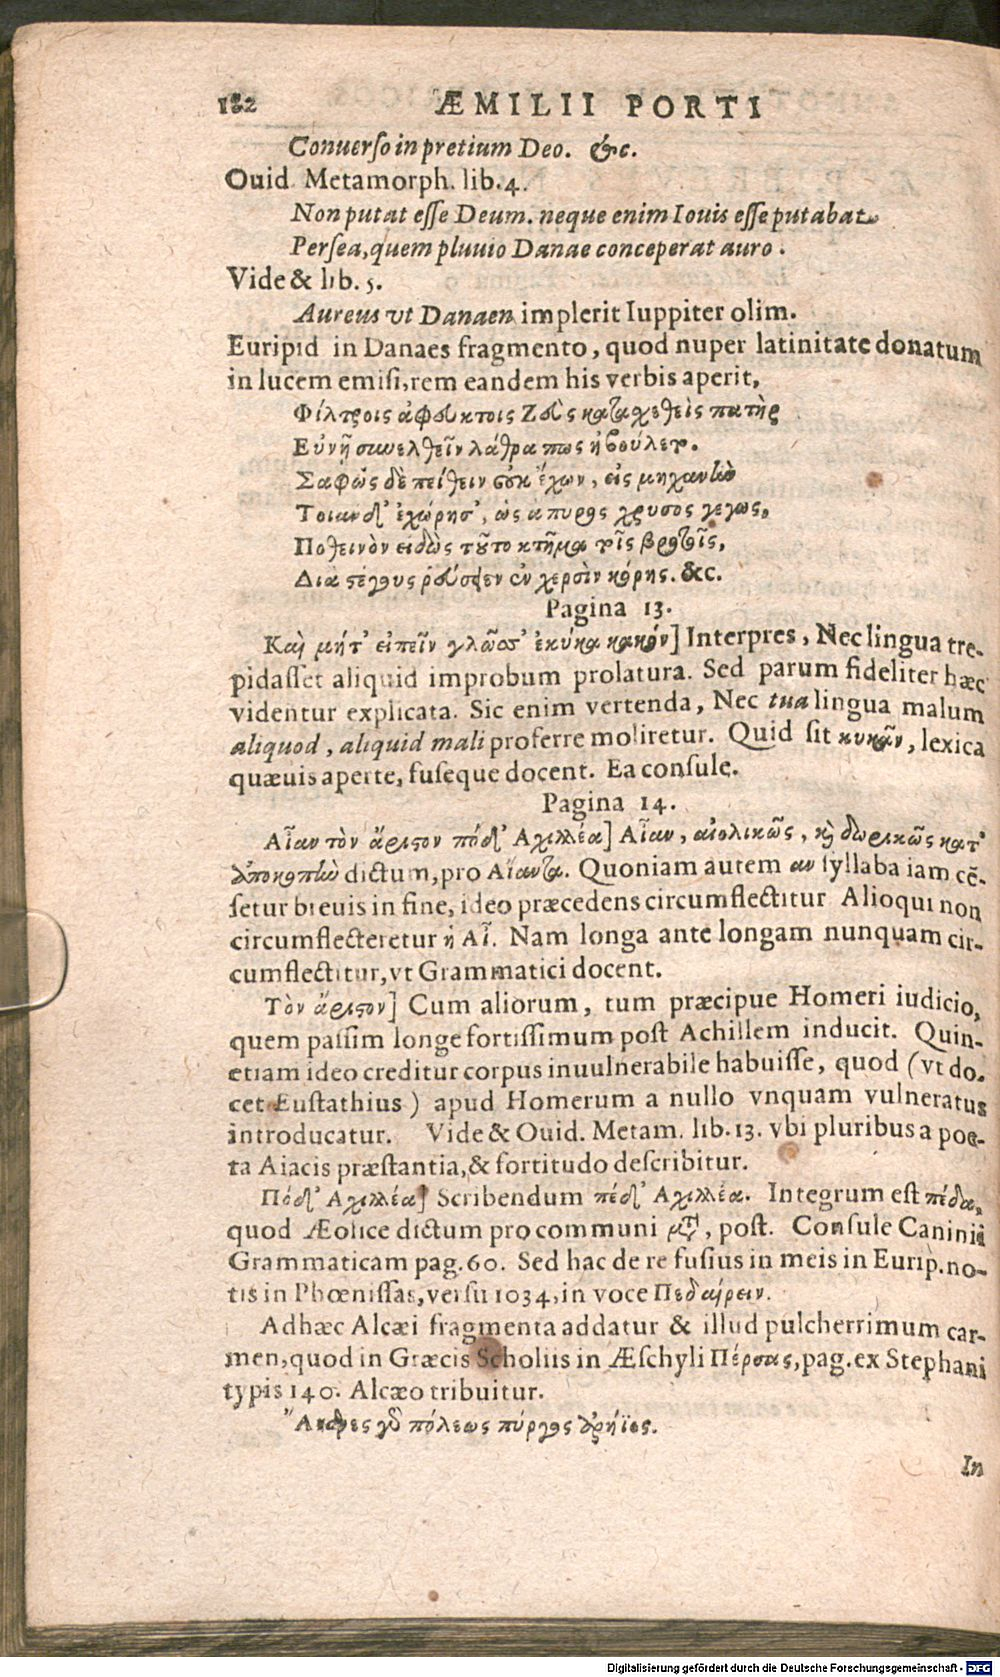 182 ÆMILII PORTI
Conuerso in pretium Deo. &c.
Ouid. Metamorph. lib. 4.
Non putat esse Deum. neque enim Iouis esse putabat
Persea, quem pluuio Danae conceperat auro.
Vide & lib. 5.
Aureus vt Danaen implerit Iuppiter olim.
Euripid in Danaes fragmento, quod nuper latinitate donatum
in lucem emisi, rem eandem his verbis aperit,
Φίλτροις ἀφύκτοις Ζεὺς κατασχεθεὶς πατὴρ
Εὐνῇ συνελθεῖν λάθρα πως ἠβούλετο.
Σαφῶς δὲ πείθειν οὐκ ἔχων, εἰς μηχανὴν
Τοιανδ' ἐχώρησ', ὡς απυρος χρυσος γεγως,
Ποθεινὸν ειδὼς τοῦτο κτῆμα τοῖς βροτοῖς,
Δια στέγους ῥεύσειεν ἐν χερσὶν κόρης. &c.
Pagina 13.
Καὶ μήτ' εἰπεῖν γλῶσσ' ἐκύκα κακόν] Interpres, Nec lingua tre-
pidasset aliquid improbum prolatura. Sed parum fideliter hæc
videntur explicata. Sic enim vertenda, Nec tua lingua malum
aliquod, aliquid mali proferre moliretur. Quid sit κυκᾶν, lexica
quæuis aperte, fuseque docent. Ea consule.
Pagina 14.
Αἶαν τὸν ἄριστον πόδ' Αχιλλέα] Αἶαν, αἰολικῶς, καὶ δωρικῶς κατ'
ἀποκοπὴν dictum, pro Αἴαντα. Quoniam autem αν syllaba iam cē-
setur breuis in fine, ideo præcedens circumflectitur Alioqui non
circumflecteretur ἡ Αἶ. Nam longa ante longam nunquam cir-
cumflectitur, vt Grammatici docent.
Τὸν ἄριστον] Cum aliorum, tum præcipue Homeri iudicio,
quem passim longe fortissimum post Achillem inducit. Quin-
etiam ideo creditur corpus inuulnerabile habuisse, quod (vt do-
cet Eustathius) apud Homerum a nullo vnquam vulneratus
introducatur. Vide & Ouid. Metam. lib. 13. vbi pluribus a poe-
ta Aiacis præstantia, & fortitudo describitur.
Πόδ' Αχιλλέα] Scribendum πέδ' Αχιλλέα. Integrum est πέδα,
quod Æolice dictum pro communi μετὰ, post. Consule Caninii
Grammaticam pag. 60. Sed hac de re fusius in meis in Eurip. no-
tis in Phœnissas, versu 1034, in voce Πεδαίρειν.
Adhæc Alcæi fragmenta addatur & illud pulcherrimum car-
men, quod in Græcis Scholiis in Æschyli Πέρσας, pag. ex Stephani
typis 140. Alcæo tribuitur.
Ἄνδρες γὸ πόλεως πύργος ἀρήϊες.
In
Digitalisierung gefördert durch die Deutsche Forschungsgemeinschaft - DFG